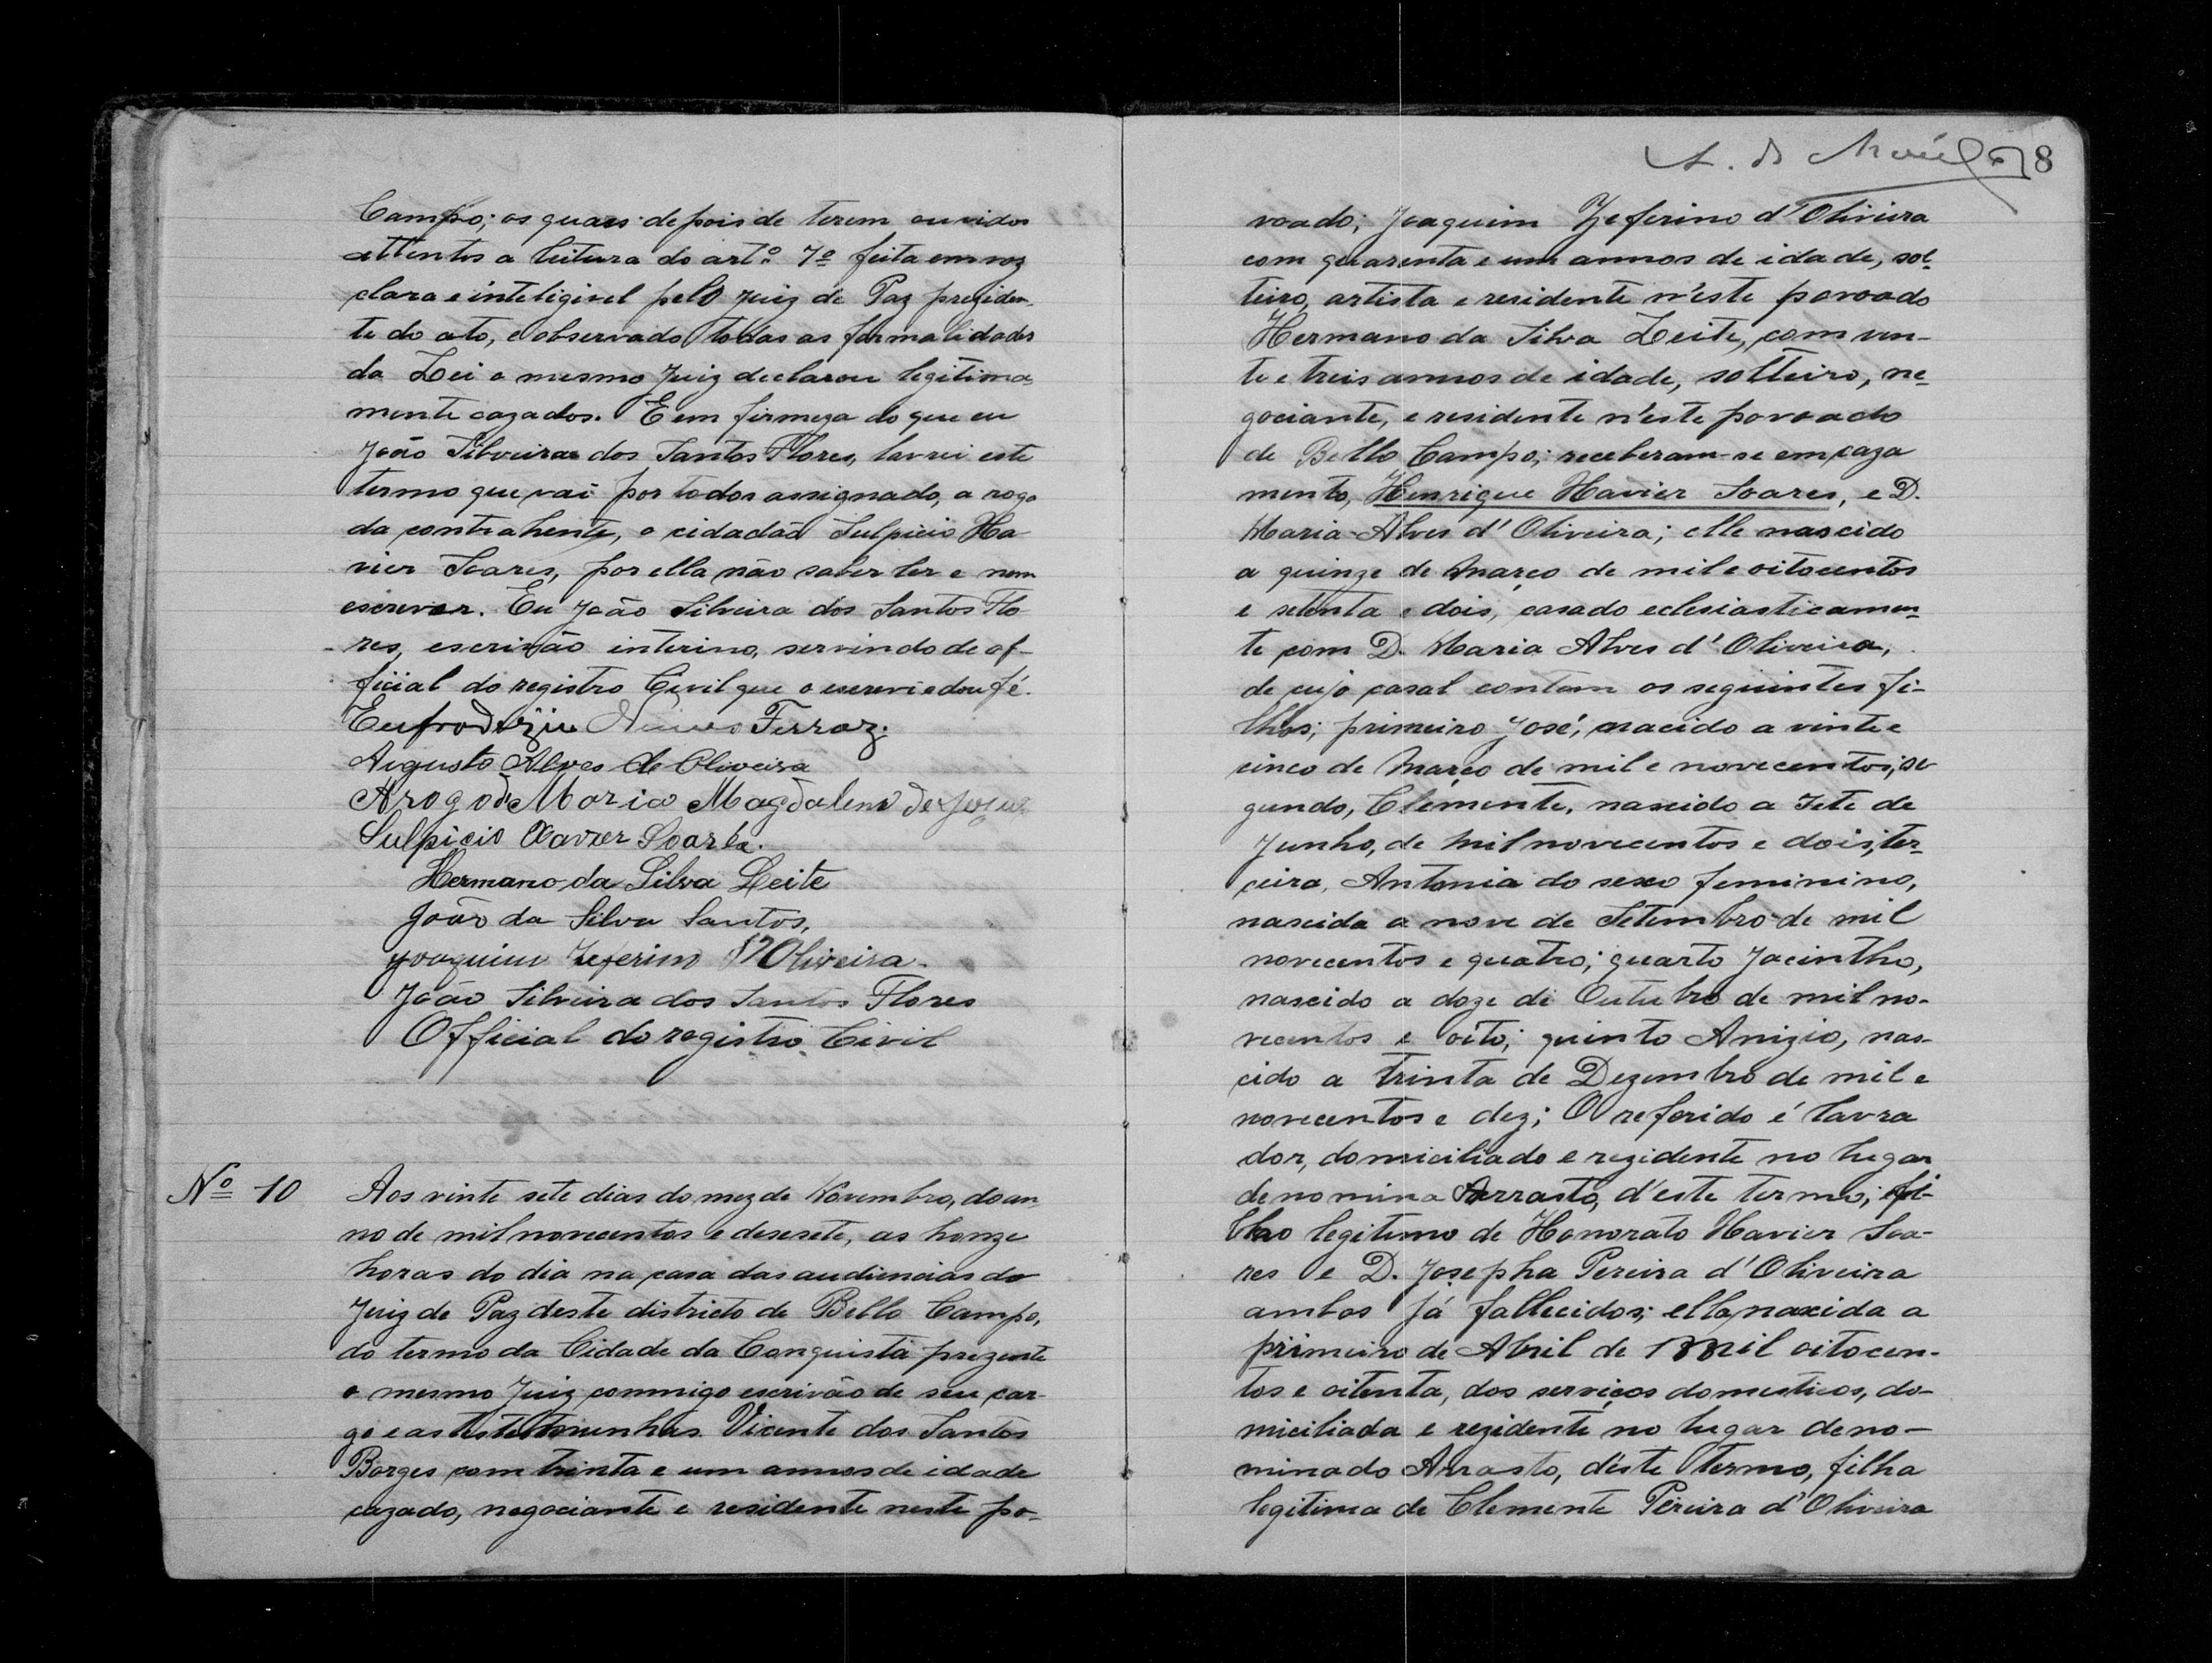 Campo; os quaes depois de terem ouvidos
attentos a leitura do artº 7º feita em voz
clara e inteligivel pelo juiz de Paz preziden-
te do ato, e observado todas as formalidades
da Lei o mesmo Juiz declarou legitima-
mente cazados. E em firmeza do que eu
João Silveira dos Santos Flores, lavrei este
termo que vai por todos assignado, a rogo
da contrahente, o cidadão Sulpicio Xa
vier Soares, por ella não saber ler e nem
escrever. Eu João Silveira dos Santos Flo
res, escrivão interino, servindo de of-
ficial do registro Civil que o escrevi e dou fé.
Eufrodizio Nunes Ferraz.
Augusto Alves de Oliveira
Arogo de Maria Magdalena de Jesus
Sulpicio Xavier Soares.
Hermano da Silva Leite
João da Silva Santos,
Joaquim Zeferino d'Oliveira.
João Silveira dos Santos Flores
Official do registro Civil
Nº 10 Aos vinte sete dias do mez de Novembro, do an-
no de mil novecentos e desesete, as honze
horas do dia na casa das audiencias do
Juiz de Paz deste districto de Bello Campo,
do termo da Cidade da Conquista prezente
o mesmo Juiz commigo escrivão de seu car-
go e as testemunhas Vicente dos Santos
Borges com trinta e um annos de idade
cazado, negociante e residente neste po-
A. de 8
voado; Joaquim Zeferino d'Oliveira
com quarenta e um annos de idade, sol-
teiro, artista e residente n'este povoado
Hermano da Silva Leite, com vin-
te e treis annos de idade, solteiro, ne-
gociante, e residente n'este povoado
de Bello Campo; receberam-se em caza
mento, Henrique Xavier Soares, e D.
Maria Alves d'Oliveira; elle nascido
a quinze de Março de mil e oitocentos
e setenta e dois, casado eclesiasticamen-
te com D. Maria Alves d'Oliveira,
de cujo casal contam os seguintes fi-
lhos; primeiro José, nacido a vinte e
cinco de Março de mil e novecentos; se
gundo, Clemente, nascido a Sete de
Junho, de mil novecentos e dois; ter-
ceira, Antonia do sexo feminino,
nascida a nove de Setembro de mil
novecentos e quatro; quarto Jacintho,
nascido a doze de Outubro de mil no-
vecentos e oito; quinto Anizio, nas-
cido a trinta de Dezembro de mil e
novecentos e dez; O referido é lavra
dor, domiciliado e rezidente no lugar
denomina Arrasto, d'este termo; fi-
lho legitimo de Honorato Xavier Soa-
res e D. Josepha Pereira d'Oliveira
ambos já fallecidos; ella, nascida a
primeiro de Abril de mil oitocen-
tos e oitenta, dos serviços domesticos, do-
miciliada e rezidente no lugar deno-
minado Arrasto, d'este termo, filha
legitima de Clemente Pereira d'Oliveira